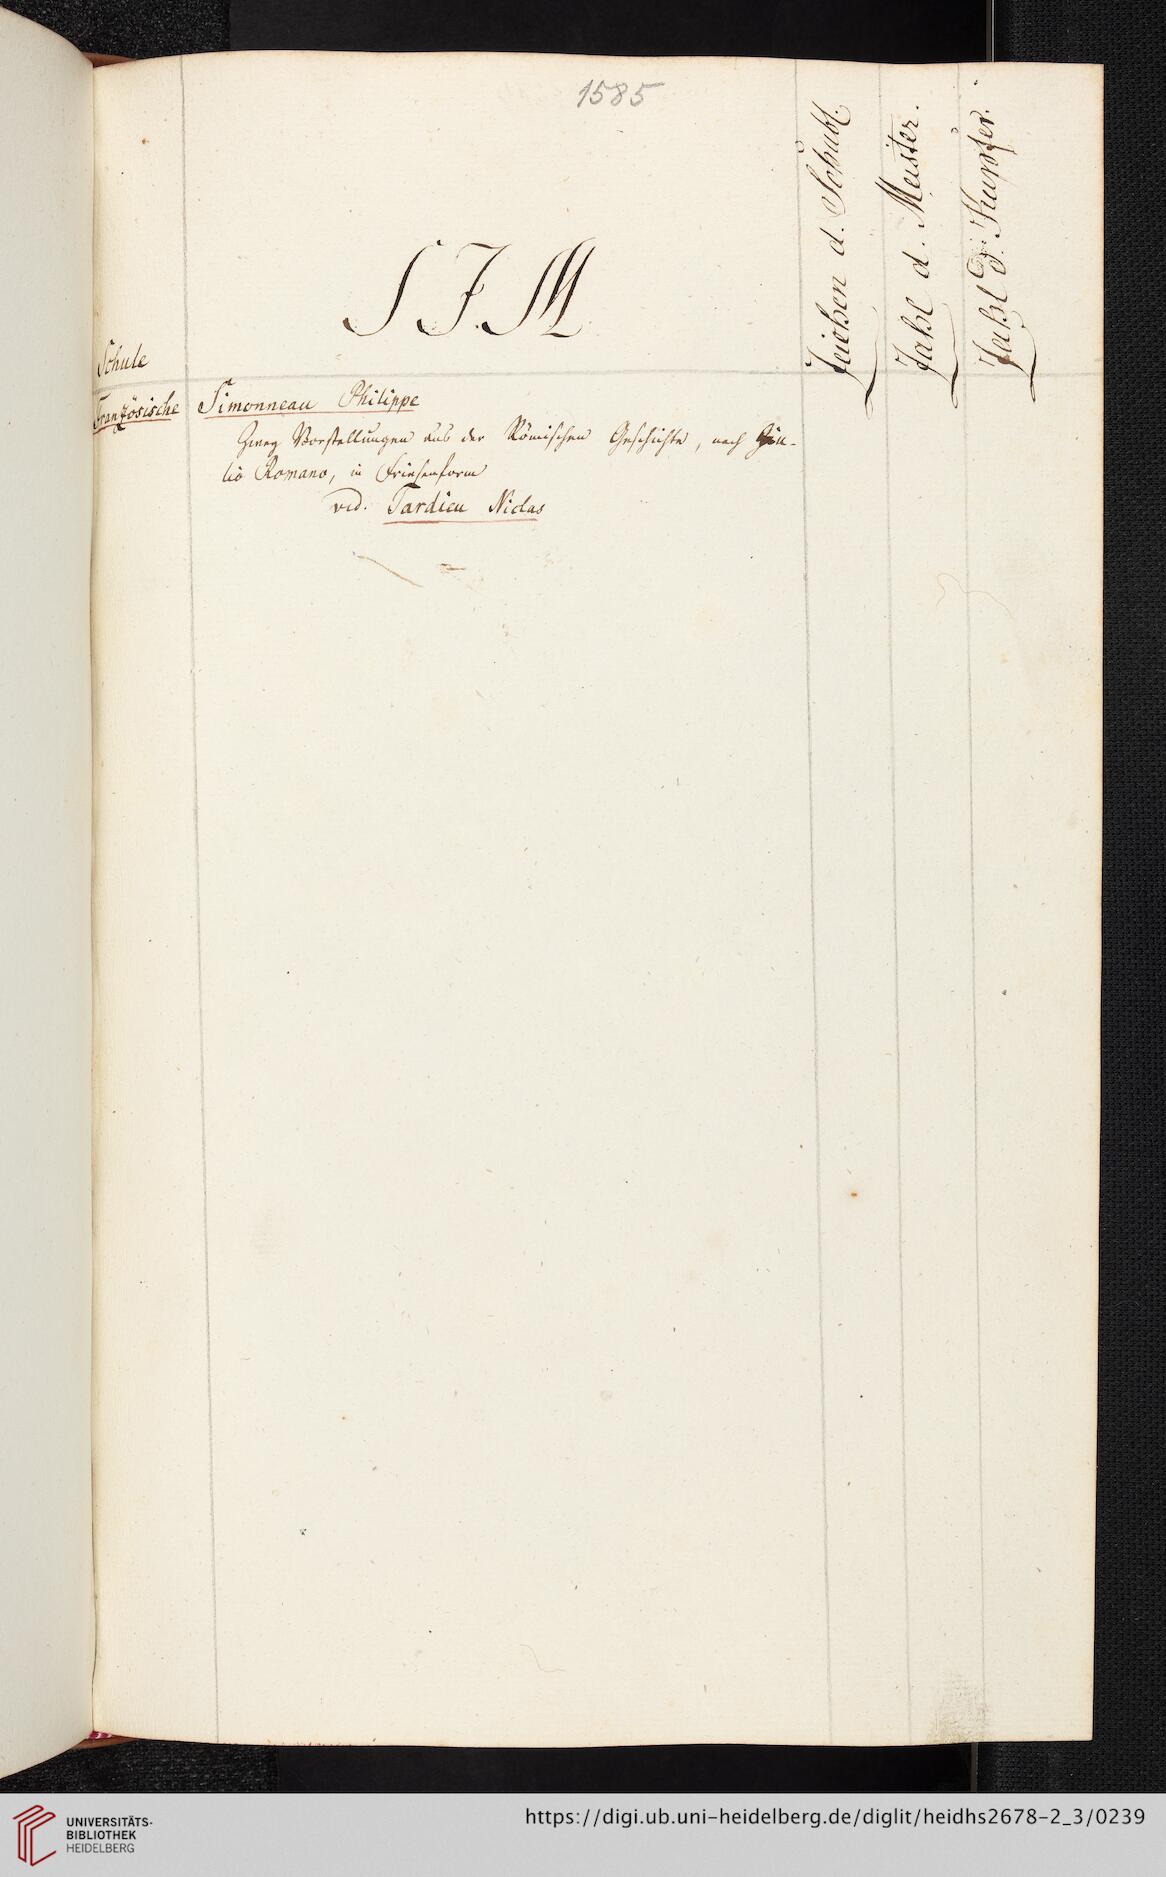 1585
Zeichen d. Schubl.
Zahl d. Meister.
Zahl d. Kupfer.
S I M
Schule
Französische Simonneau Philippe
Zwey Vorstellungen aus der Römischen Geschichte, nach Giu-
lio Romano, in Friesenform
vid. Tardieu Niclas
UNIVERSITÄTS-
BIBLIOTHEK
HEIDELBERG
https://digi.ub.uni-heidelberg.de/diglit/heidhs2678-2_3/0239